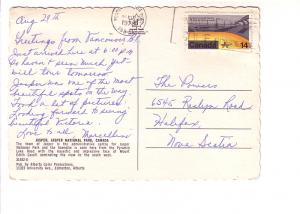 Aug 29th
Greetings from Vancouver
Just arrived here at 6:00 pm
So haven't seen much yet
will tour tomorrow
Jasper was one of the most
beautiful spots on the way.
Took a lot of pictures.
Looking forward to seeing
beautiful Victoria.
Love to all Marcelline
JASPER, JASPER NATIONAL PARK, CANADA
The town of Jasper is the administrative centre for Jasper
National Park and the townsite is seen here from the Pyramid
Lake Road with the majestic and impressive face of Mount
Edith Cavell dominating the view to the south west.
Pub. by Alberta Color Productions,
Edmonton, Alberta
Canada 14
The Powers
6545 Roslyn Road
Halifax,
Nova Scotia